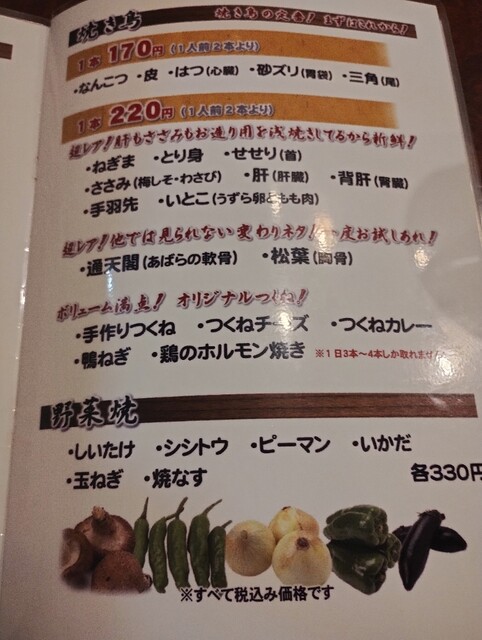 焼き鳥 焼き鳥の定番！まずはこれから！
1本 170円 (1人前2本より)
・なんこつ ・皮 ・はつ(心臓) ・砂ズリ(胃袋) ・三角(尾)
1本 220円 (1人前2本より)
超レア！肝もささみもお造り用を浅焼きしてるから新鮮！
・ねぎま ・とり身 ・せせり(首)
・ささみ(梅しそ・わさび) ・肝(肝臓) ・背肝(腎臓)
・手羽先 ・いとこ(うずら卵ともも肉)
超レア！他では見られない変わりネタ！一度お試しあれ！
・通天閣(あばらの軟骨) ・松葉(胸骨)
ボリューム満点！ オリジナルつくね！
・手作りつくね ・つくねチーズ ・つくねカレー
・鴨ねぎ ・鶏のホルモン焼き ※1日3本〜4本しか取れません
野菜焼
・しいたけ ・シシトウ ・ピーマン ・いかだ
・玉ねぎ ・焼なす 各330円
※すべて税込み価格です